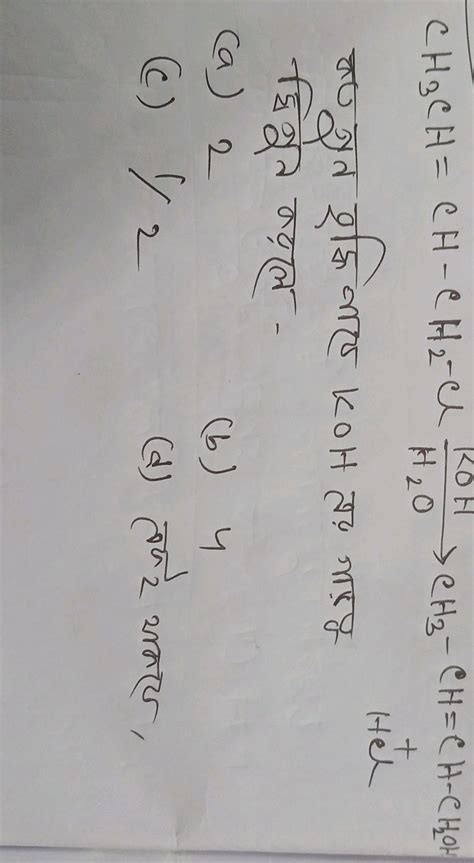 CH3CH = CH - CH2-Cl KOH/H2O → CH3 - CH=CH-CH2OH
+
HCl
কত গুন বৃদ্ধি পাবে KOH এর গাঢ়ত্ব
দ্বিগুন করলে -
(a) 2 (b) 4
(c) 1/2 (d) একই থাকবে,